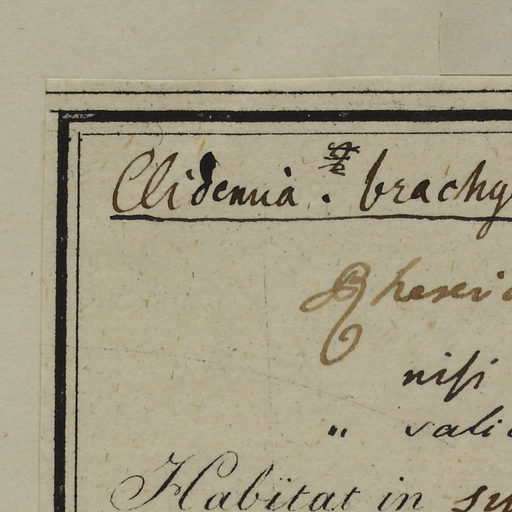 Clidenia . brachy
Rhexia
nisi
" vali
Habitat in sy